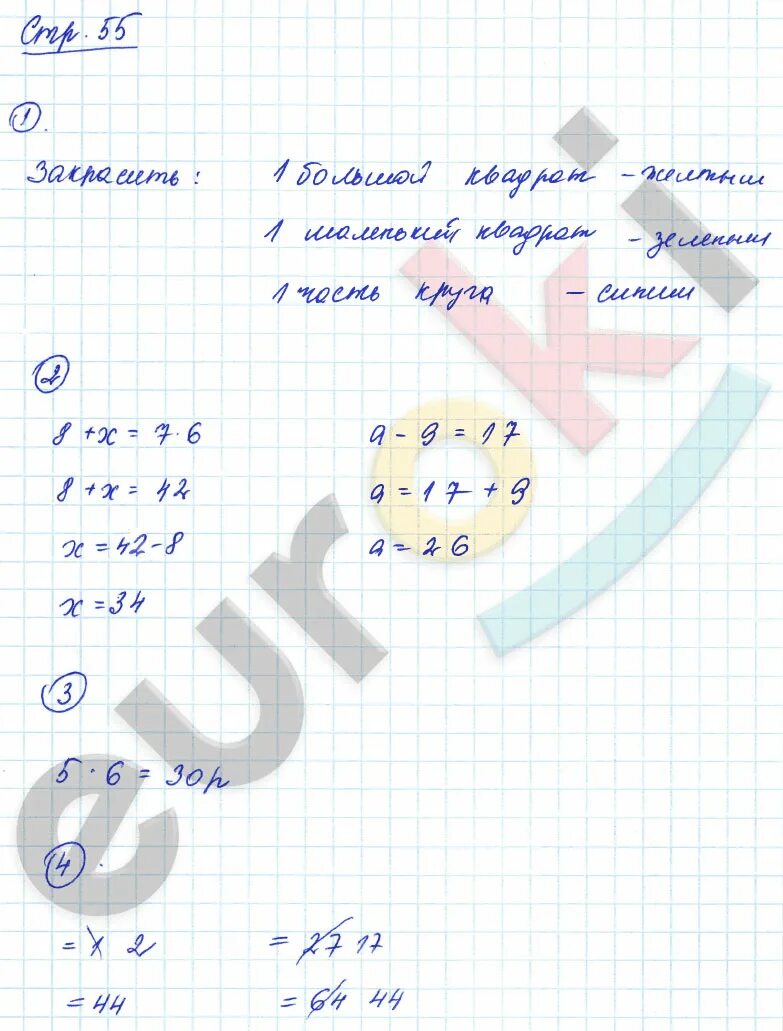 Стр. 55
1.
Закрасить: 1 большой квадрат – желтым
1 маленький квадрат – зеленым
1 часть круга – синим
2
8 + x = 7 · 6
8 + x = 42
x = 42 - 8
x = 34
a - 9 = 17
a = 17 + 9
a = 26
3
5 · 6 = 30 р
4.
= 1 2
= 44
= 27 17
= 64 44
euroki